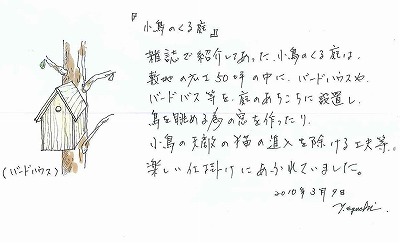 『小鳥のくる庭』
雑誌で紹介してあった、小鳥のくる庭は、
敷地の広さ50坪の中に、バードハウスや、
バードバス等を、庭のあちこちに設置し、
鳥を眺める為の窓を作ったり、
小鳥の天敵の猫の進入を除ける工夫等、
楽しい仕掛けにあふれていました。
(バードハウス)
2010年3月9日
Y.eguchi